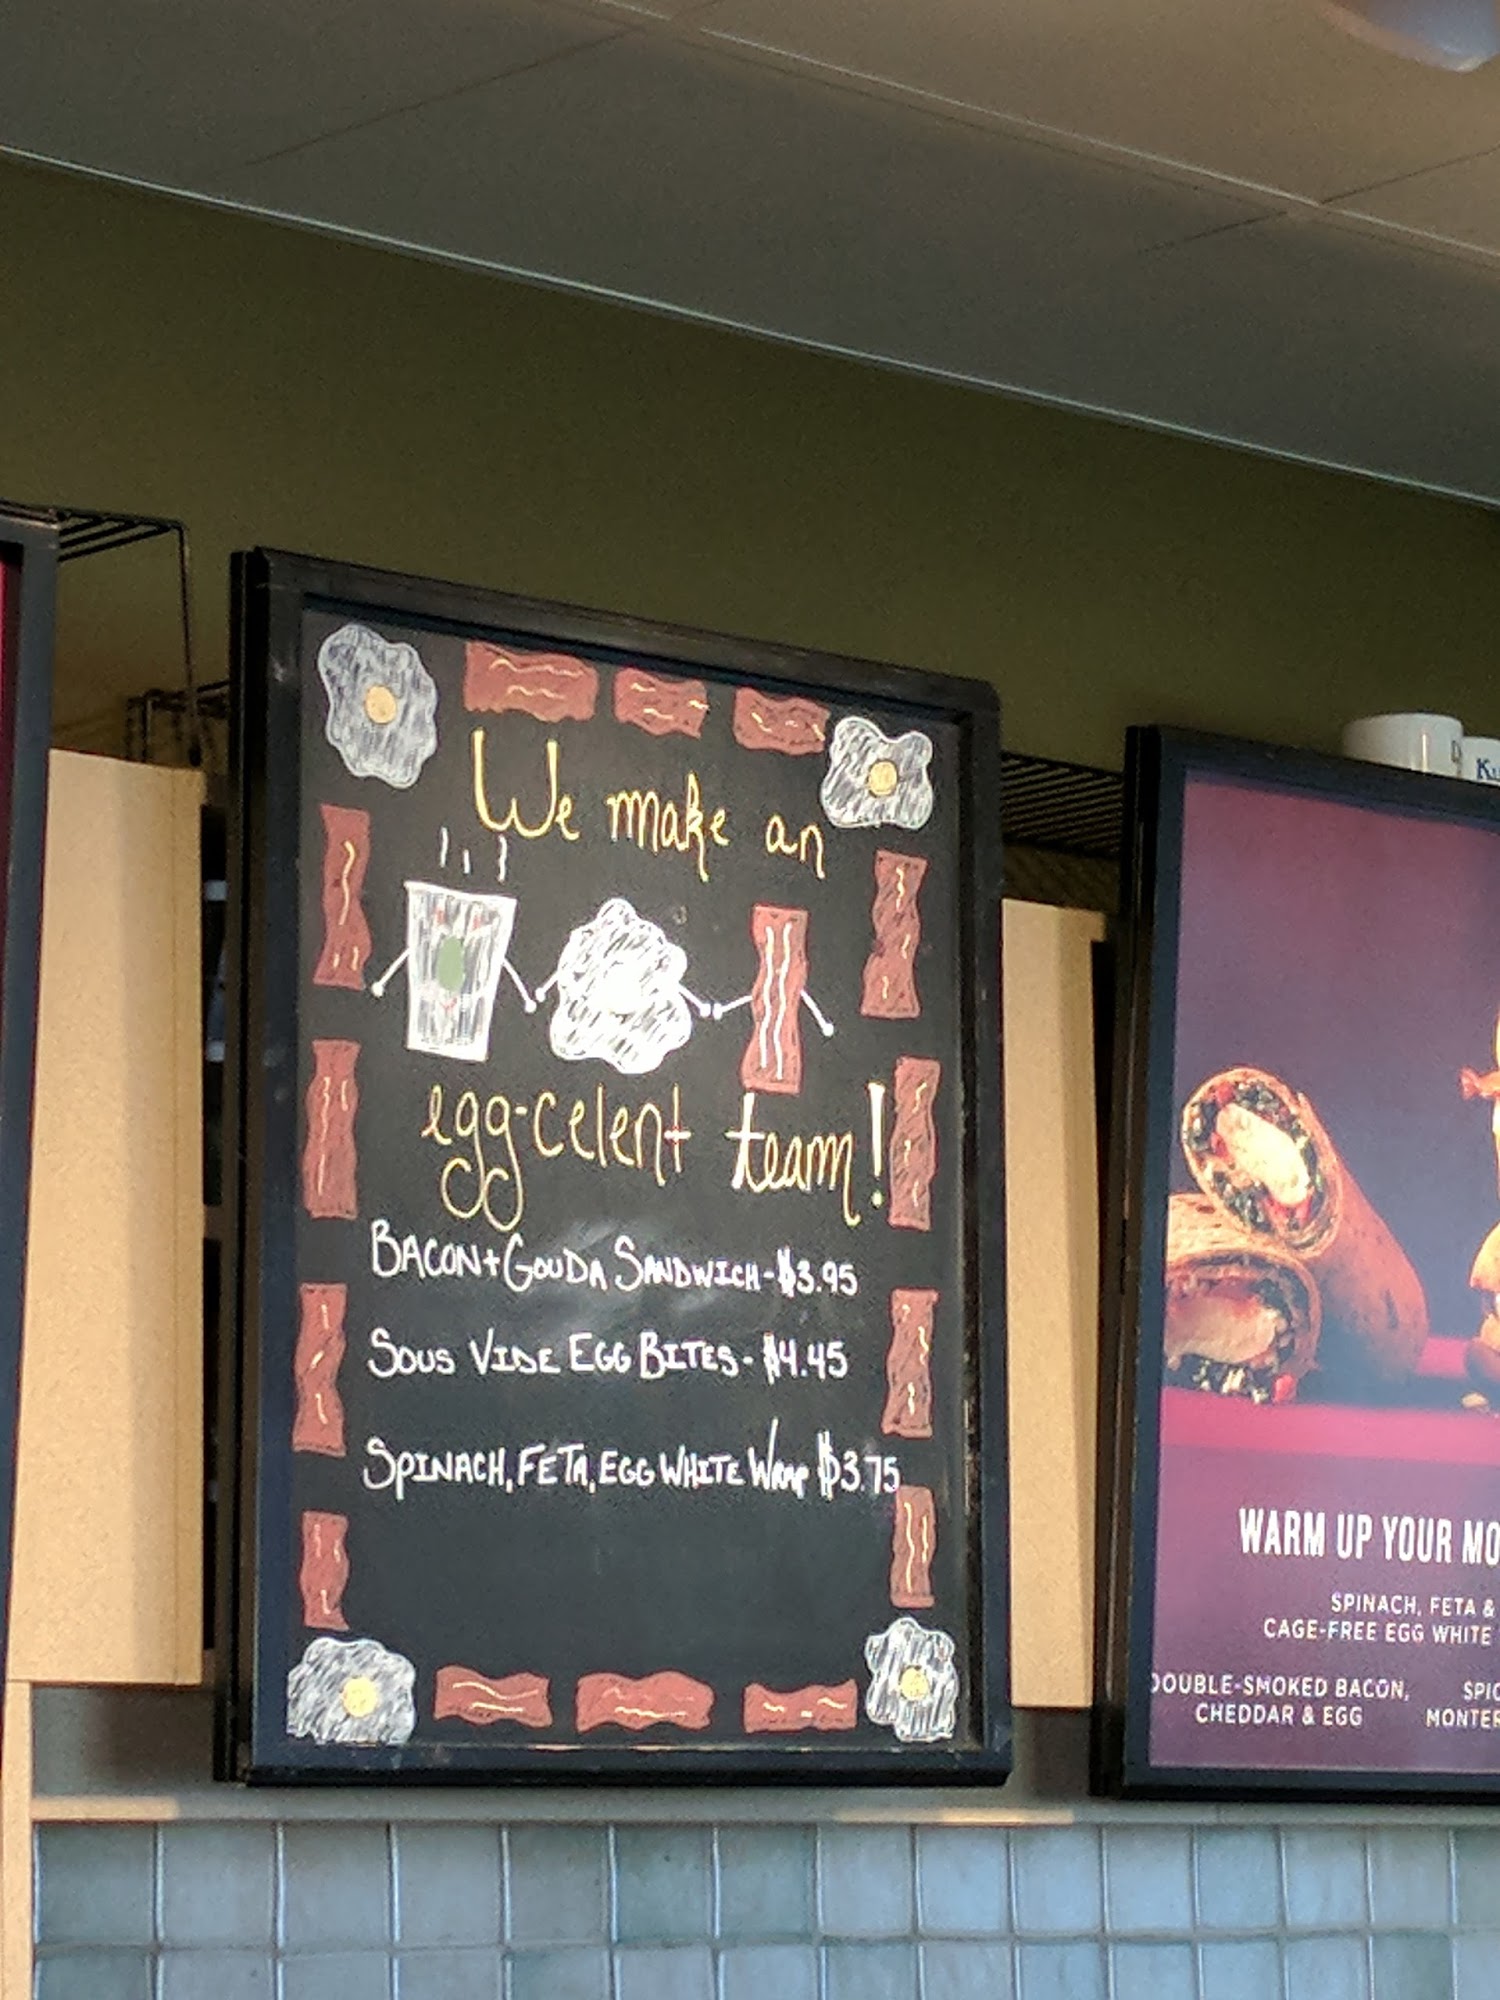 We make an
egg-celent team!
BACON+GOUDA SANDWICH-$3.95
SOUS VIDE EGG BITES-$4.45
SPINACH, FETA, EGG WHITE WRAP $3.75
WARM UP YOUR MO
SPINACH, FETA &
CAGE-FREE EGG WHITE
DOUBLE-SMOKED BACON,
CHEDDAR & EGG
SPIC
MONTER